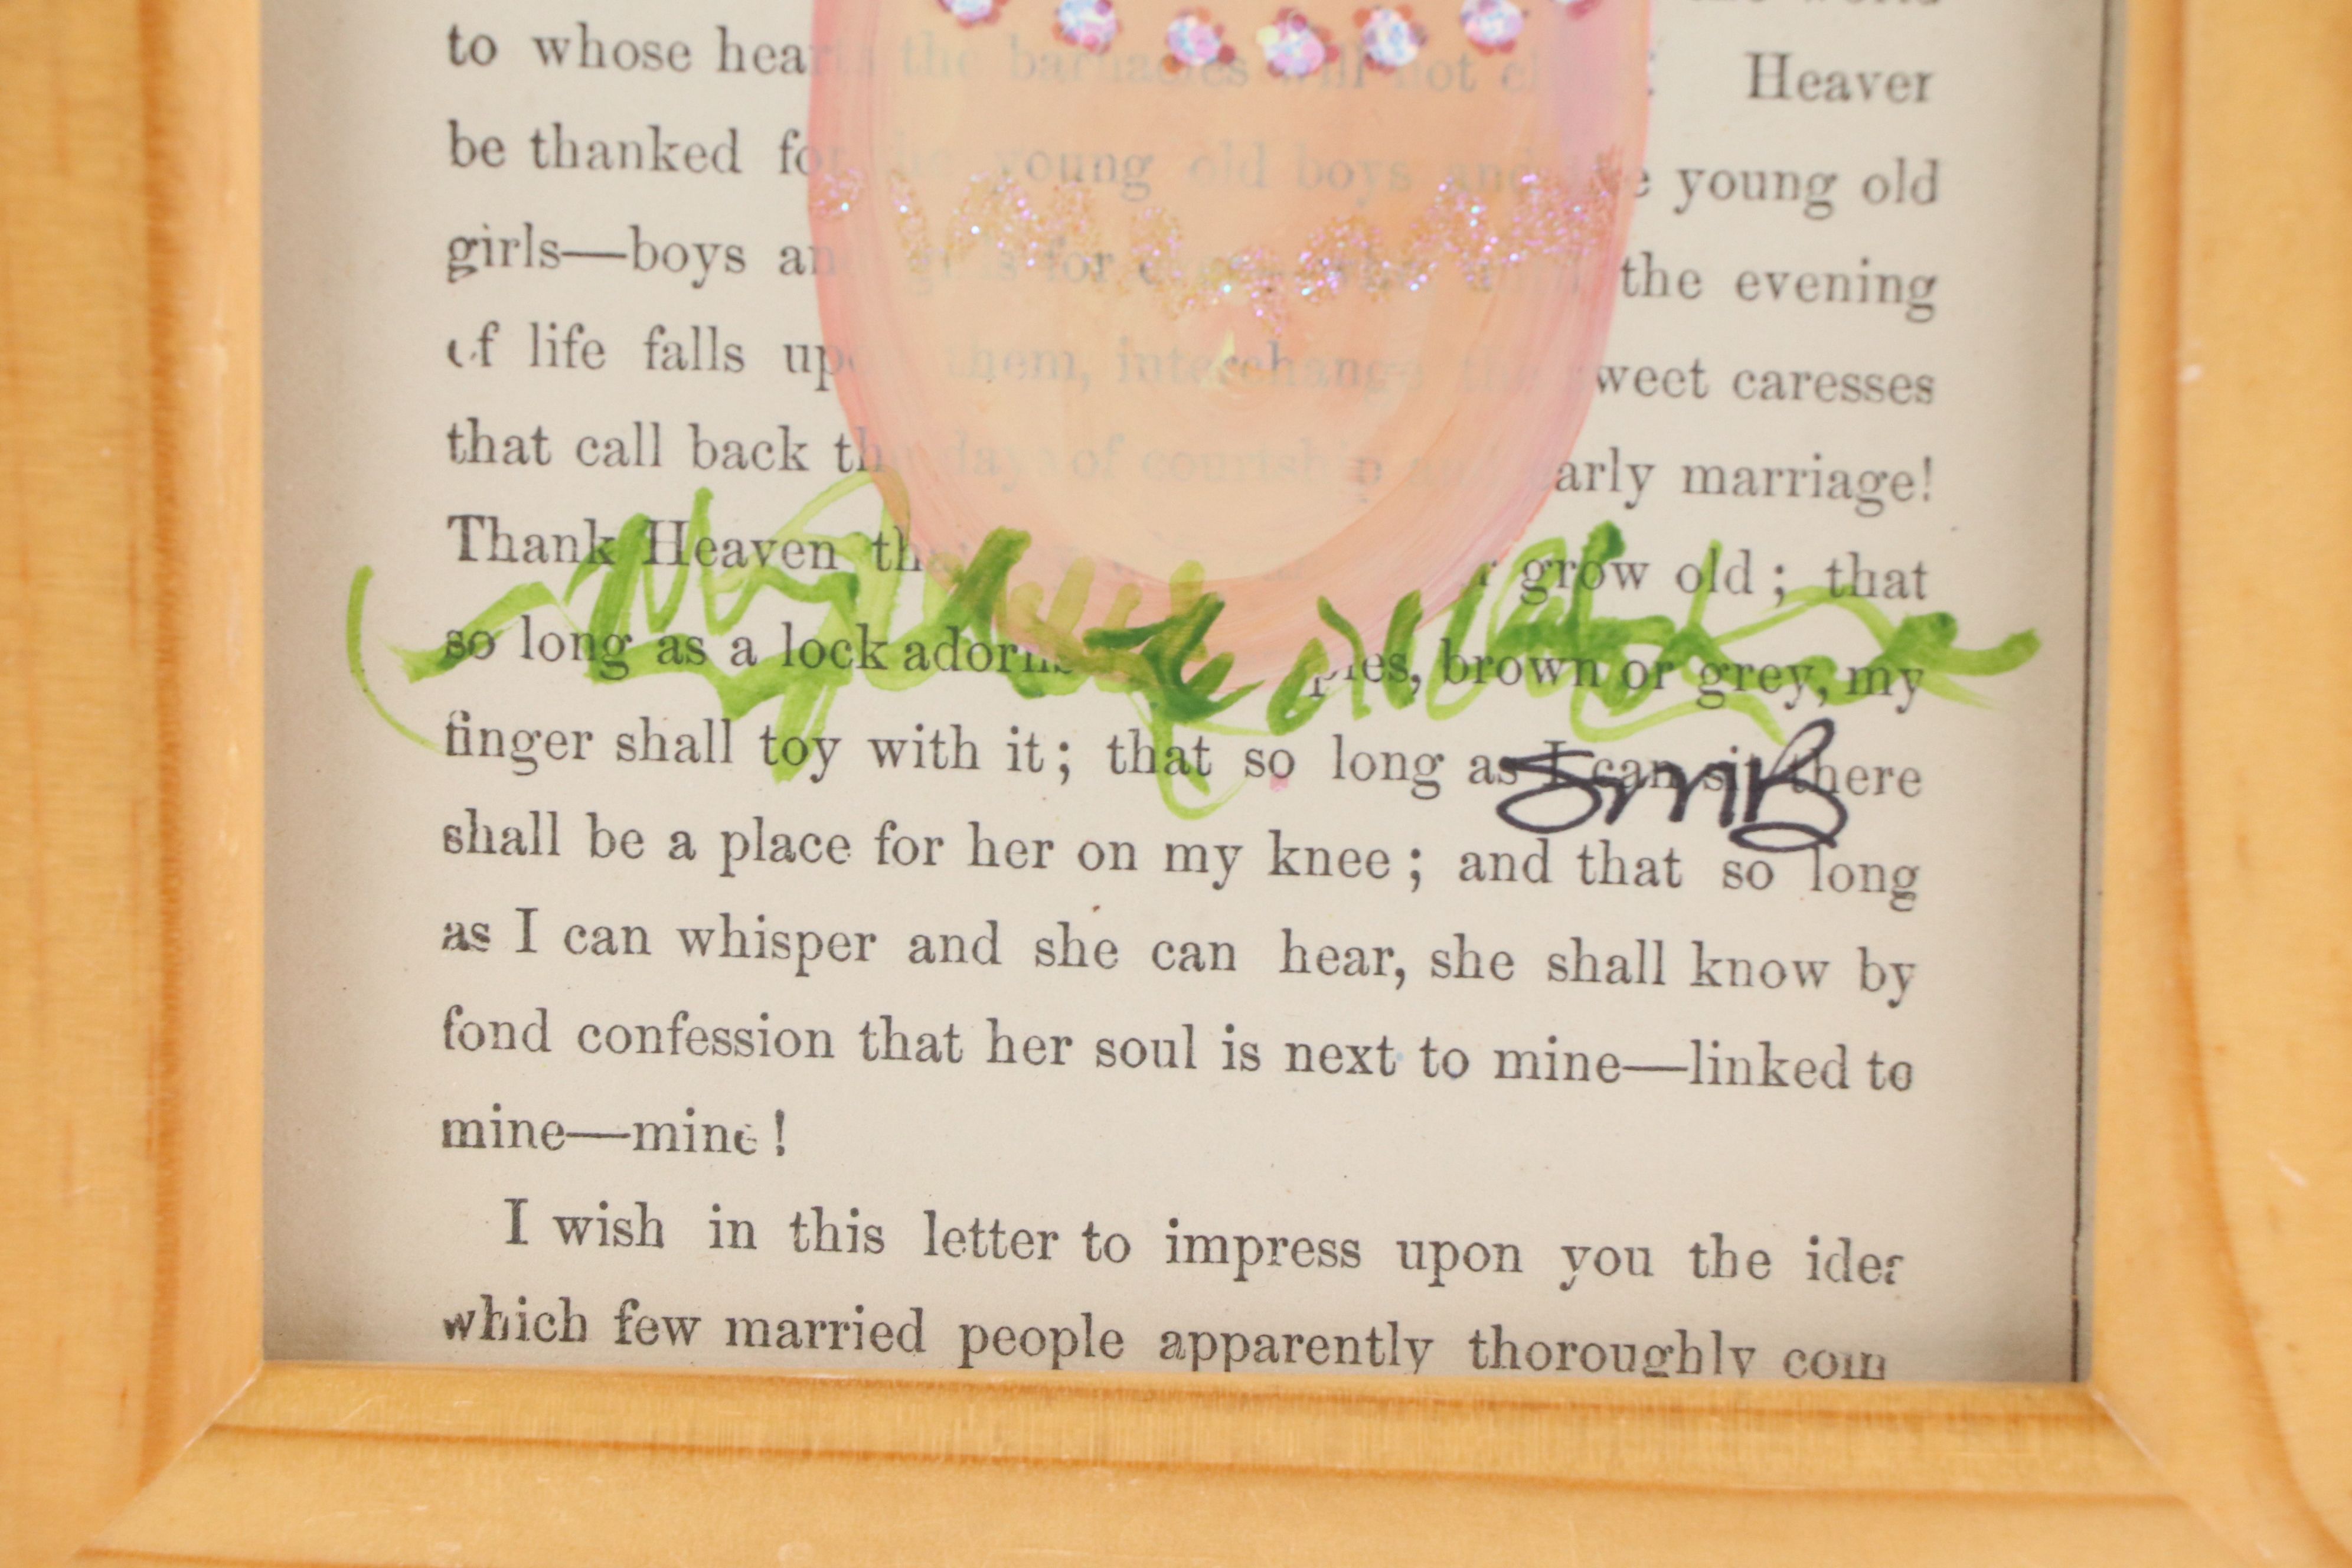 to whose hearts the barnacles will not Heaven
be thanked for the young old boys and the young old
girls—boys and girls for the evening
of life falls upon them, interchange the sweet caresses
that call back the days of courtship and early marriage!
Thank Heaven that grow old; that
so long as a lock adorns brown or grey, my
finger shall toy with it; that so long as I can sit there
SMB
shall be a place for her on my knee; and that so long
as I can whisper and she can hear, she shall know by
fond confession that her soul is next to mine—linked to
mine—mine!
I wish in this letter to impress upon you the idea
which few married people apparently thoroughly com